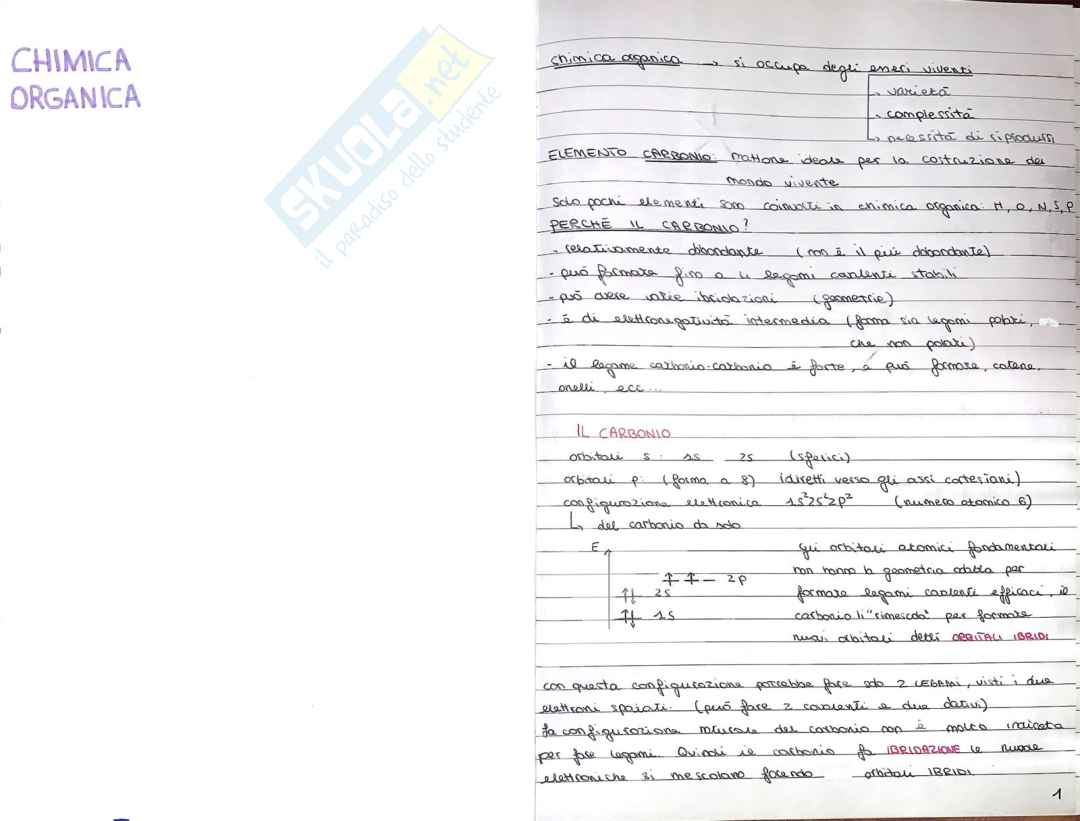 CHIMICA
ORGANICA
SKUOLA.net
il paradiso dello studente
chimica organica → si occupa degli esseri viventi
→ varietà
→ complessità
→ necessità di riprodursi
ELEMENTO CARBONIO: mattone ideale per la costruzione del
mondo vivente
Solo pochi elementi sono coinvolti in chimica organica: H, O, N, S, P
PERCHÉ IL CARBONIO?
- relativamente abbondante (non è il più abbondante)
- può formare fino a 4 legami covalenti stabili
- può avere varie ibridazioni (geometrie)
- è di elettronegatività intermedia (forma sia legami polari,
che non polari)
- il legame carbonio-carbonio è forte, e può formare, catene,
anelli, ecc...
IL CARBONIO
orbitali s: 1s 2s (sferici)
orbitali p: (forma a 8) (diretti verso gli assi cartesiani)
configurazione elettronica 1s²2s²2p² (numero atomico 6)
↳ del carbonio da solo
E
2p
2s
1s
gli orbitali atomici fondamentali
non hanno la geometria adatta per
formare legami covalenti efficaci, il
carbonio li "rimescola" per formare
nuovi orbitali detti ORBITALI IBRIDI
con questa configurazione potrebbe fare solo 2 LEGAMI, visti i due
elettroni spaiati. (può fare 2 covalenti e due dativi)
La configurazione naturale del carbonio non è molto indicata
per fare legami. Quindi il carbonio fa IBRIDAZIONE le nuvole
elettroniche si mescolano facendo orbitali IBRIDI
1